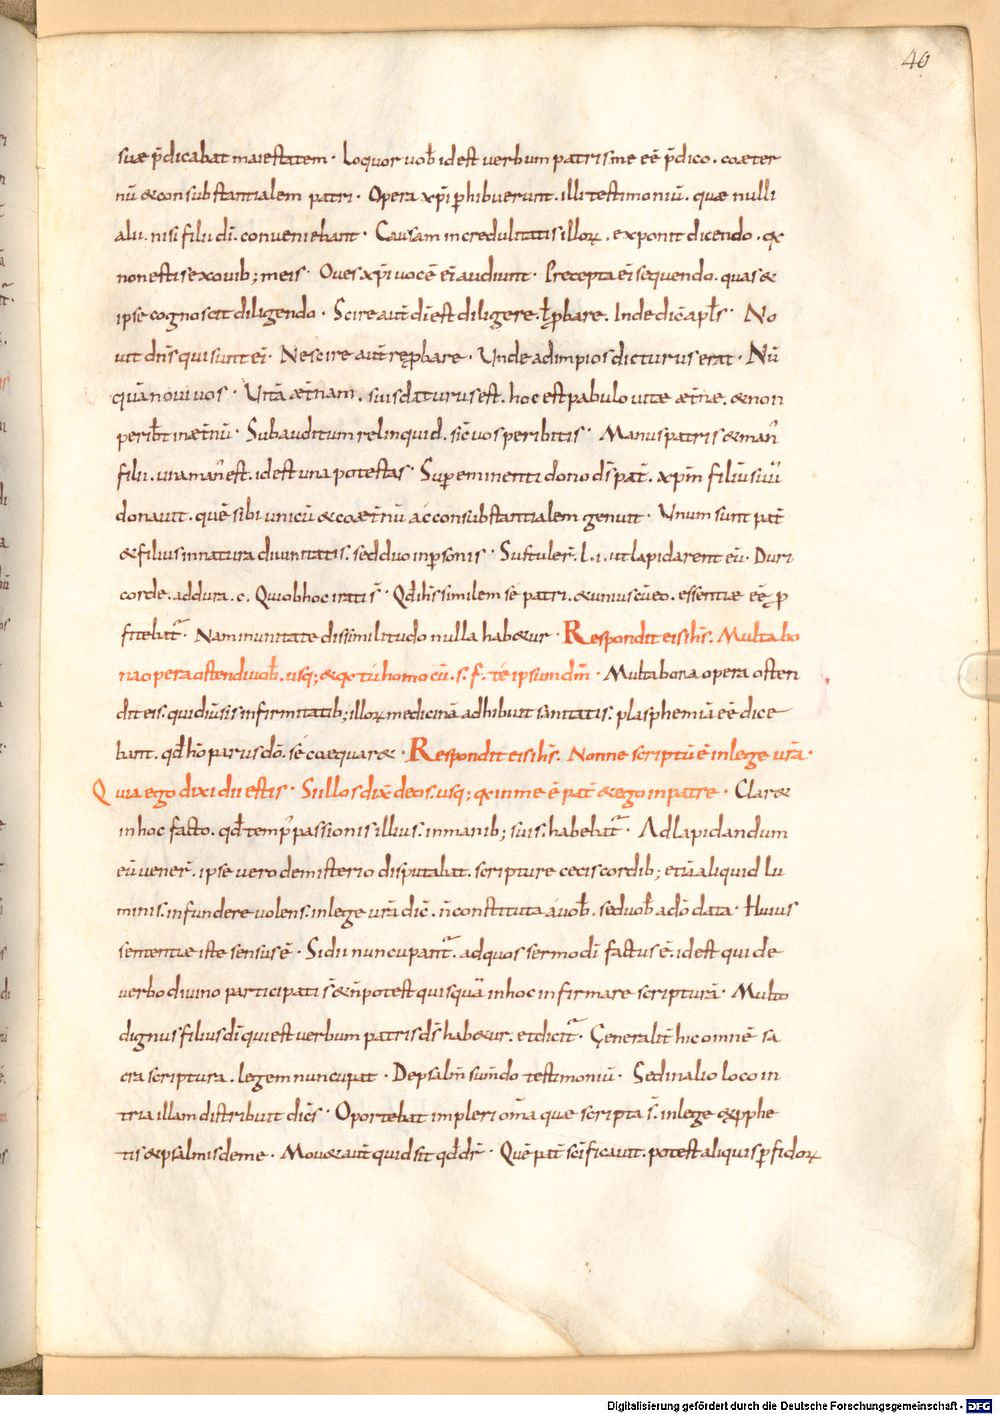 40
suæ p̄dicabat maiestatem · Loquor uob̄ id est uerbum patris me eē p̄dico . coæter
nū & consubstantialem patri · Opera xp̄i phibuerunt . illi testimoniū . quæ nulli
alii . nisi filii dī . conueniebant · Causam incredulitatis illoꝝ . exponit dicendo . qꝛ
non estis ex ouib; meis · Oues xp̄i uocē ei audiunt · Precepta ei sequendo . quas &
ipse cognoscit diligendo · Scire aut̄ dī est diligere . ł ꝓbare . Inde dic̄ apl̄s · No
uit dn̄s qui sunt ei · Nescire aut̄ ręꝓbare · Unde ad impios dicturus erat · Nū
quā noui uos · Uitā æt̄nam . suis daturus est . hoc est pabulo uitæ æt̄næ . & non
perib̄t in æt̄nū · Subauditum relinquid . sic̄ uos peribitis · Manus patris & man̄
filii . una man̄ est . id est una potestas · Suꝑeminenti dono dī pat̄ . xp̄m filiū suū
donauit . quē sibi unicū & coæt̄nū ac consubstantialem genuit · Unum sunt pat̄
& filius in natura diuinitatis . sed duo in ꝑsonis · Sustuler̄ . l . i . ut lapidarent eū · Duri
corde . ad dura . c . Qui ob hoc irati s̄ · Qd̄ ihs̄ similem sē patri . & unius cū eo . essentiæ eē ꝓ
fitebat᷑ · Nam in unitate dissimilitudo nulla hab&ur · Respondit eis ihs̄ . Multa bo
na opera ostendi uob̄ . usq; & qꝛ tú homo cū . s . f . te ipsum dm̄ · Multa bona opera osten
dit eis . qui diūsis infirmitatib; illoꝝ medicinā adhibuit sanitatis . plasphemiā eē dice
bant . qd̄ hō parus dō . sē coæquar& · Respondit eis ihs̄ . Nonne scriptū ē in lege ur̄a ·
Quia ego dixi dii estis · Si illos dix̄ deos . usq; qꝛ in me ē pat̄ & ego in patre · Clar&
in hoc facto . qd̄ temp̄ passionis illius . in manib; suis . habebat᷑ · Ad lapidandum
eū uener̄ . ipse uero de misterio disputabat . scripturę cecis cordib; etiā aliquid lu
minis . infundere uolens . in lege ur̄a dic̄ . n̄ constituta a uob̄ . sed uob̄ a dō data · Huius
sententiæ iste sensus ē · Si dii nuncupant᷑ . ad quos sermo dī factus ē . id est qui de
uerbo diuino participati s̄ & n̄ potest quisquā in hoc infirmare scripturā · Multo
dignus filius dī qui est uerbum patris ds̄ hab&ur . et dicit᷑ . Generalit̄ hic omnē sa
cra scriptura . legem nuncupat · De psalm̄ sum̄do testimoniū · Sed in alio loco in
tria illam distribuit dic̄s · Oportebat impleri om̄a quæ scripta s̄ . in lege & ꝓphe
tis & psalmis de me · Mou& aut̄ quid sit qd̄ dr̄ · Quē pat̄ sc̄ificauit . potest aliquis ꝑfidoꝝ
Digitalisierung gefördert durch die Deutsche Forschungsgemeinschaft - DFG